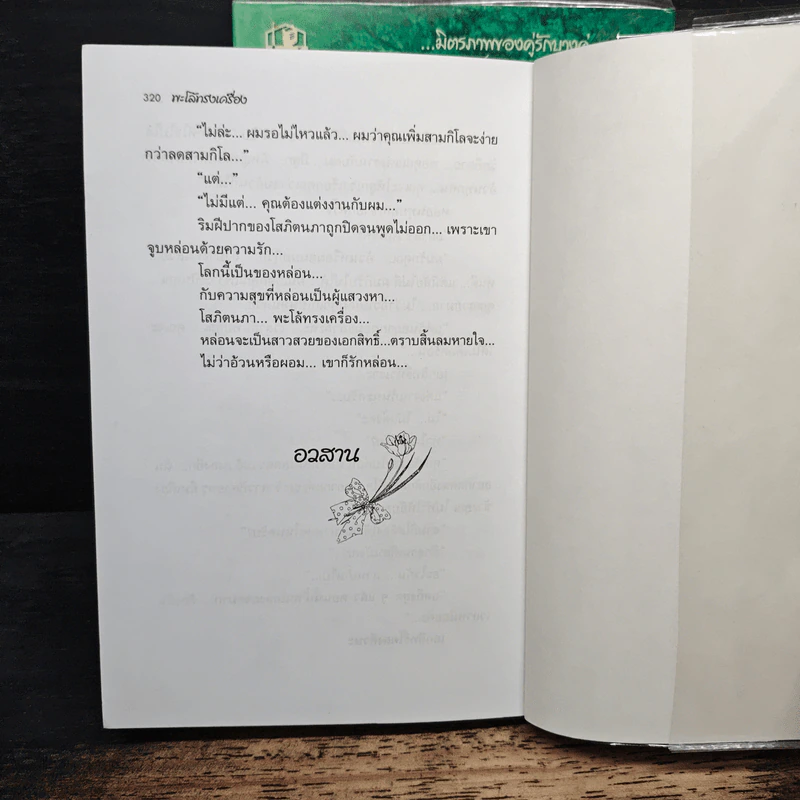 ...มิตรภาพของคู่รัก
320 พะโล้ทรงเครื่อง
“ไม่ล่ะ... ผมรอไม่ไหวแล้ว... ผมว่าคุณเพิ่มสามกิโลจะง่าย
กว่าลดสามกิโล...”
“แต่...”
“ไม่มีแต่... คุณต้องแต่งงานกับผม...”
ริมฝีปากของโสภิตนภาถูกปิดจนพูดไม่ออก... เพราะเขา
จูบหล่อนด้วยความรัก...
โลกนี้เป็นของหล่อน...
กับความสุขที่หล่อนเป็นผู้แสวงหา...
โสภิตนภา... พะโล้ทรงเครื่อง...
หล่อนจะเป็นสาวสวยของเอกสิทธิ์...ตราบสิ้นลมหายใจ...
ไม่ว่าอ้วนหรือผอม... เขาก็รักหล่อน...
อวสาน